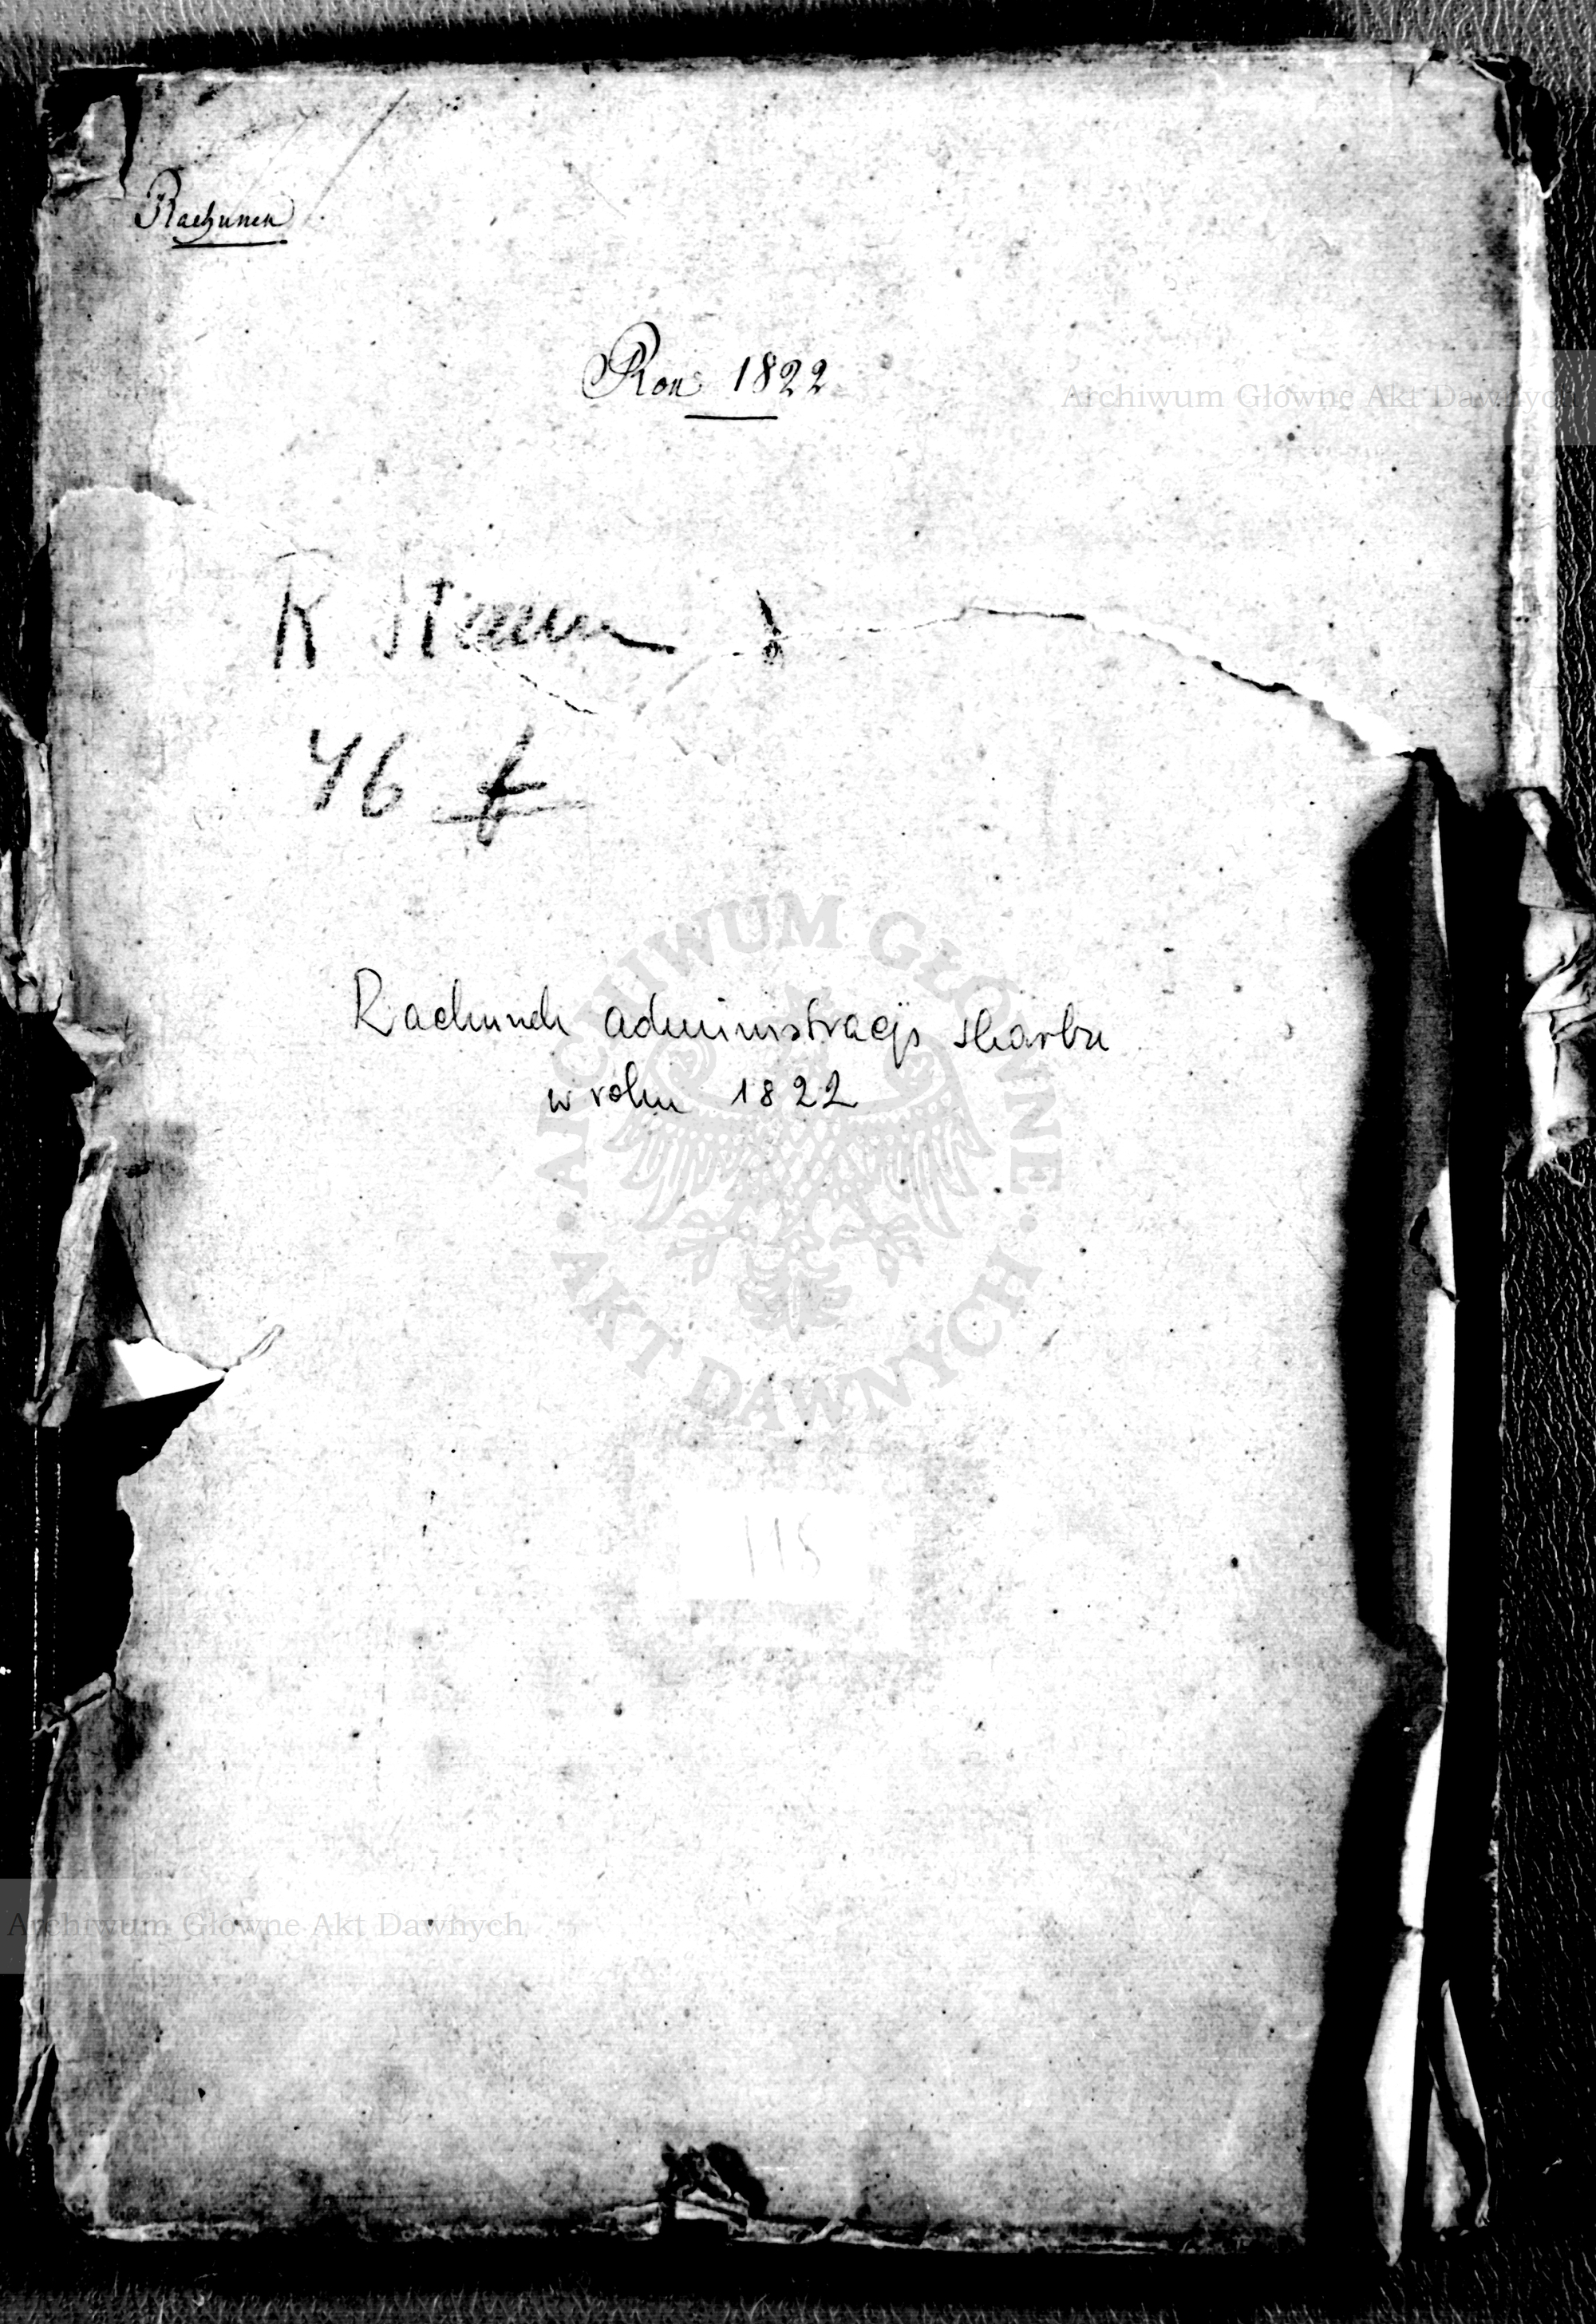 Rachunek
Rok 1822
Archiwum Główne Akt Dawnych
R
46 f
Rachunek administracji skarbu
w roku 1822
ARCHIWUM GŁÓWNE AKT DAWNYCH
115
Archiwum Główne Akt Dawnych